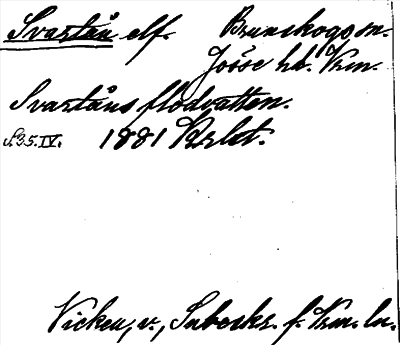 Svartån elf. Brunskogs sn.
Jösse hd. Vrm.
Svartåns flodvatten.
S.35.IV. 1881 Krbt.
Vicken, v., Sabeskr. f. Vrm. ln.